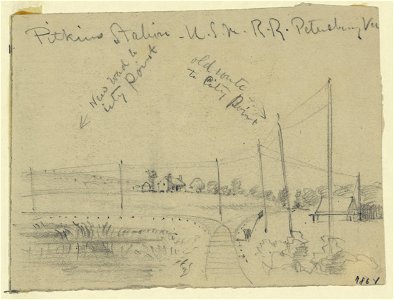 Pitkins Station - U.S.M. R.R. Petersburg Va
New road to
City Point
old route
to City Point